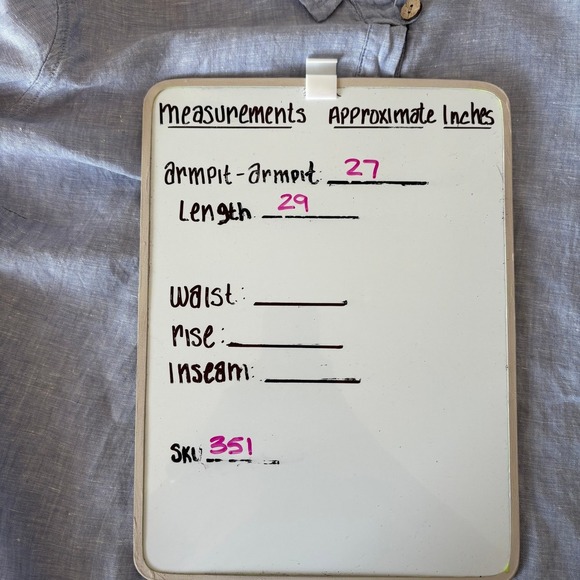 measurements Approximate Inches
armpit-armpit: 27
Length 29
waist:
rise:
Inseam:
SKU 351